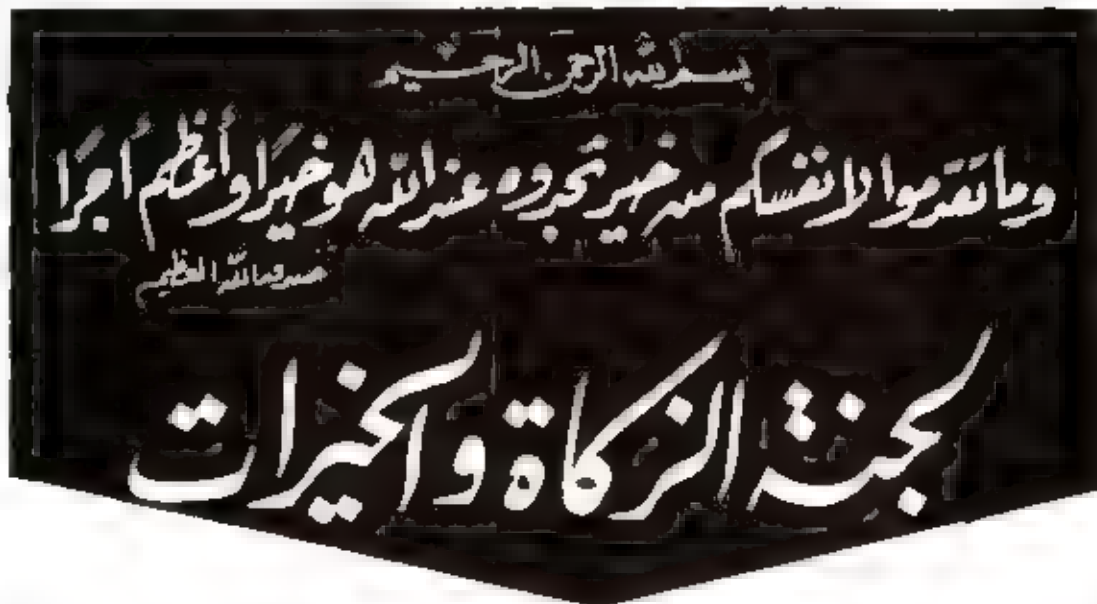 بسم الله الرحمن الرحيم
وما تقدموا لانفسكم من خير تجدوه عند الله هو خيرًا وأعظم أجرًا
صدق الله العظيم
لجنة الزكاة والخيرات